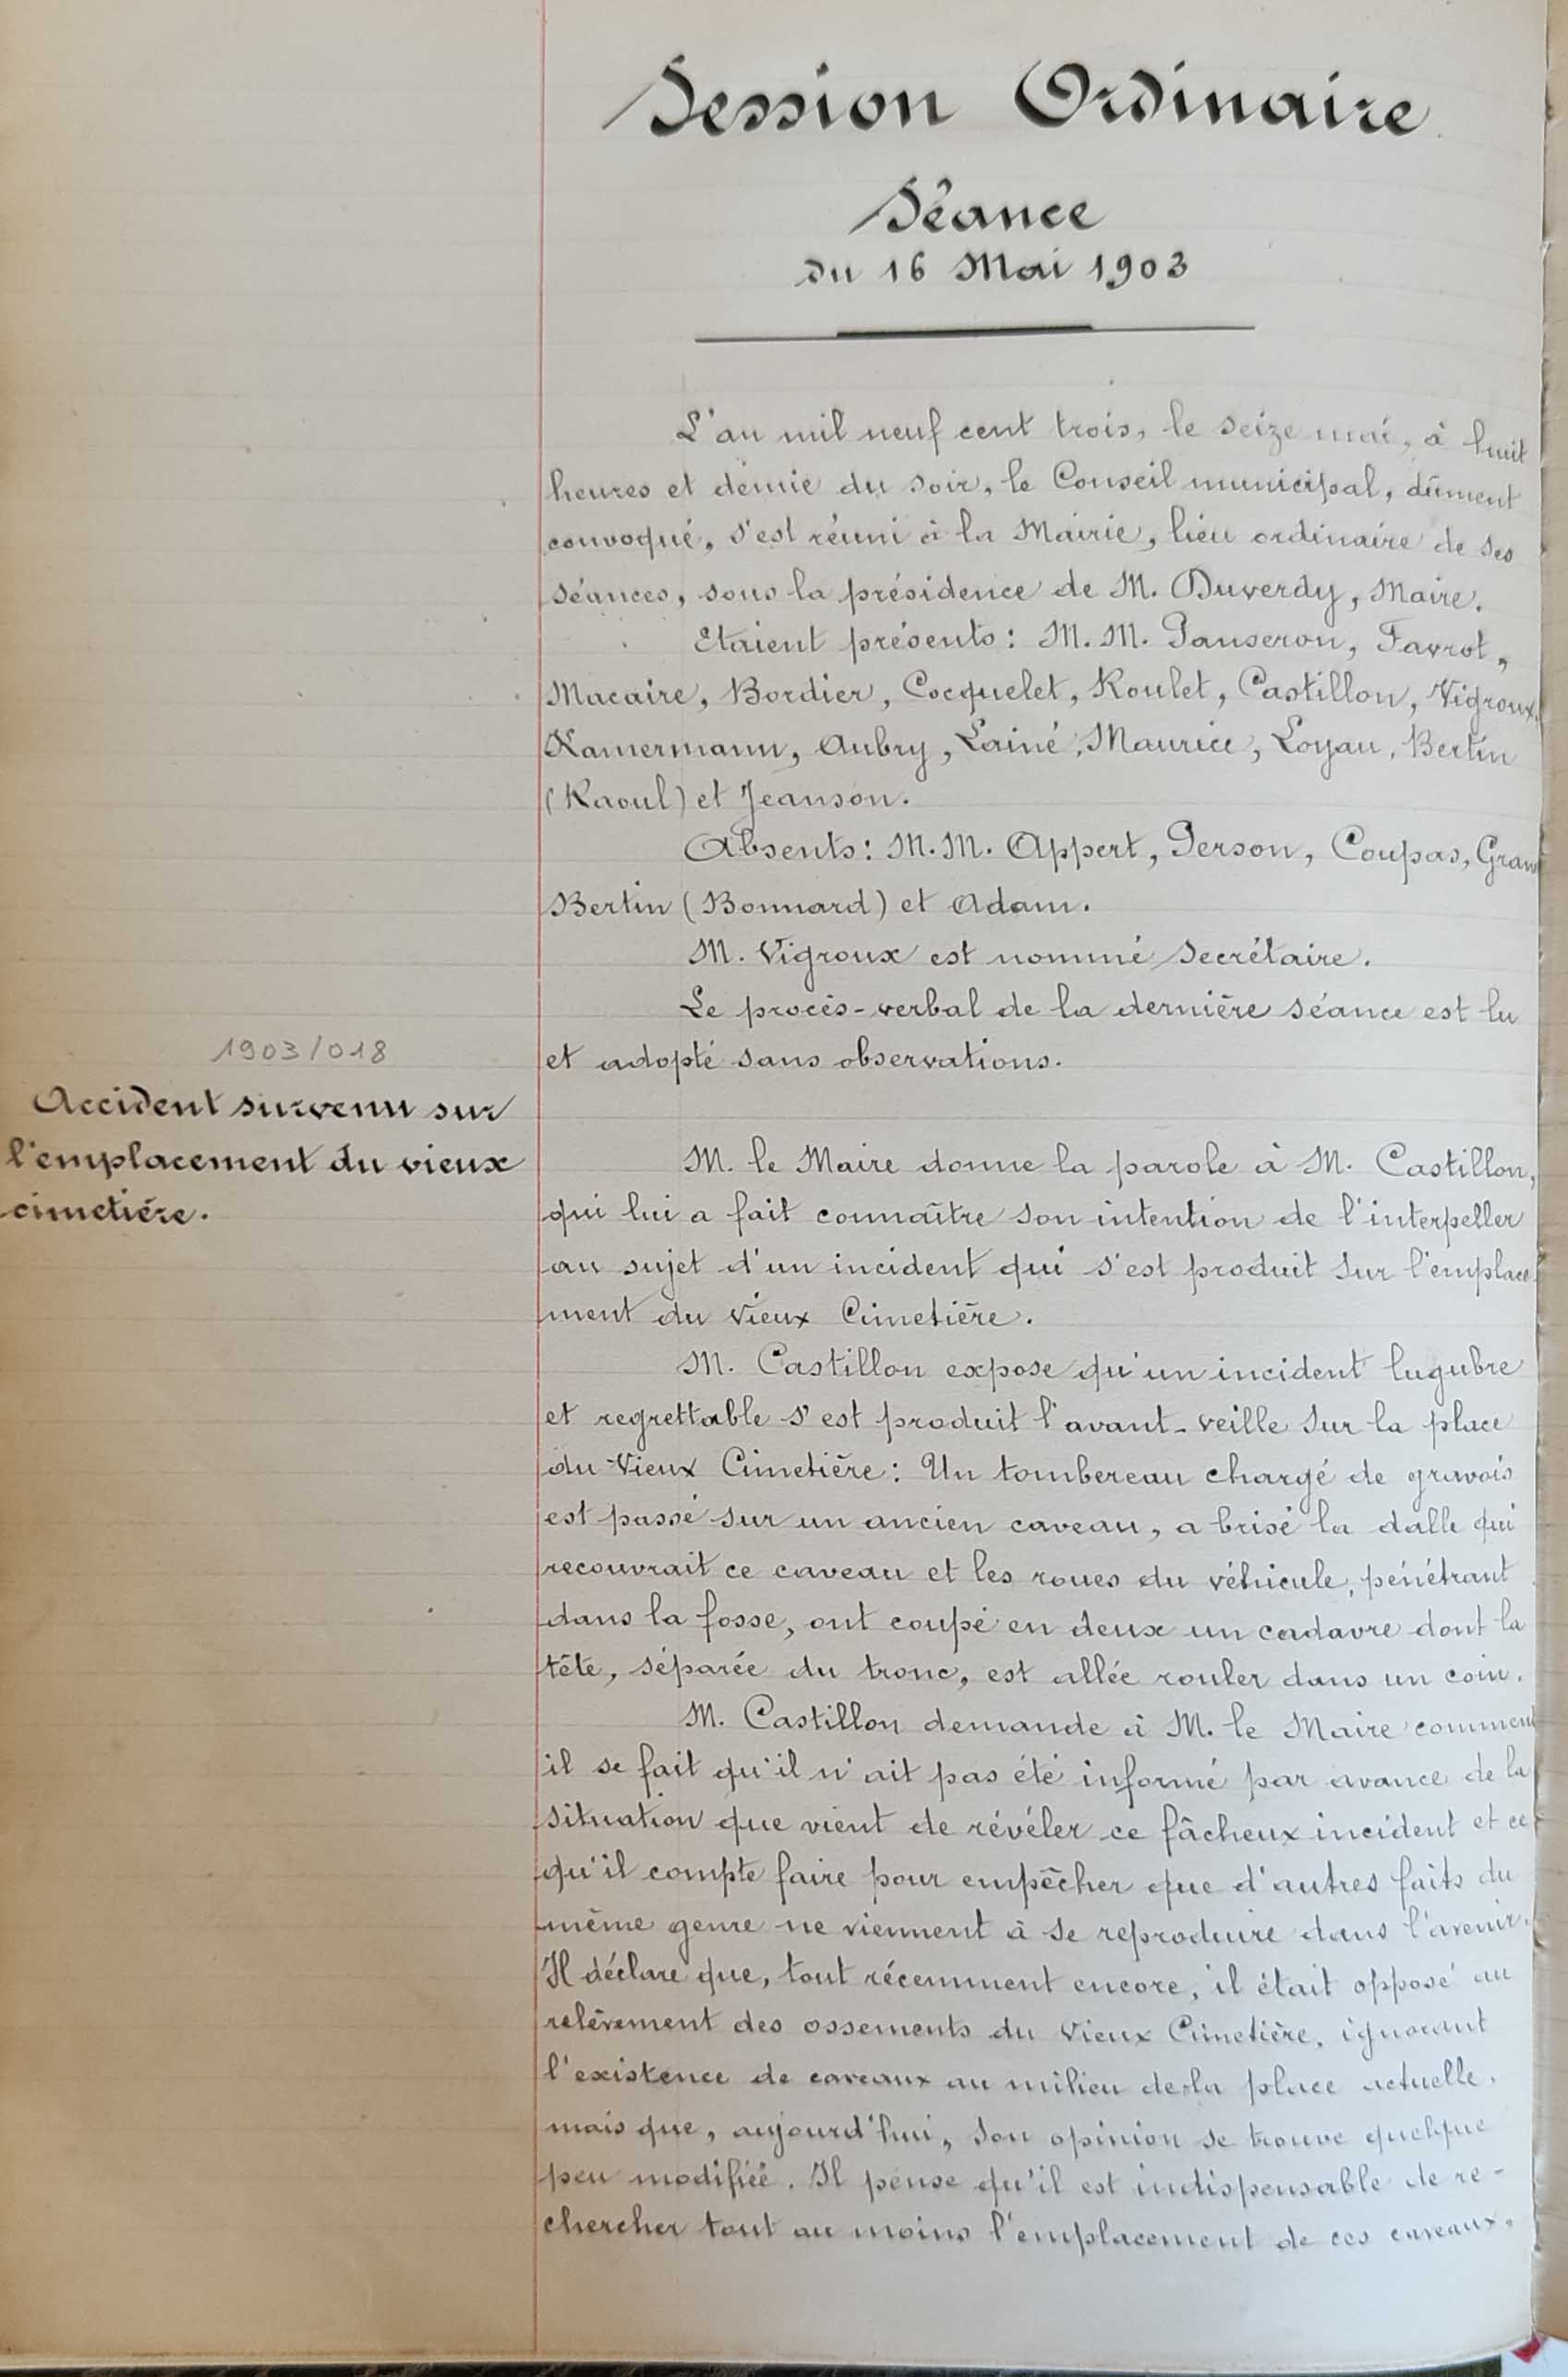 Session Ordinaire
Séance
du 16 Mai 1903
L'an mil neuf cent trois, le seize mai, à huit
heures et demie du soir, le Conseil municipal, dûment
convoqué, s'est réuni à la Mairie, lieu ordinaire de ses
séances, sous la présidence de M. Duverdy, Maire.
Etaient présents: M. M. Panseron, Favrot,
Macaire, Bordier, Cocquelet, Roulet, Castillon, Vigroux,
Kamermann, Aubry, Lainé, Maurice, Loyau, Bertin
(Raoul) et Jeanson.
Absents: M. M. Appert, Person, Coupas,
Bertin (Bonnard) et Adam.
M. Vigroux est nommé Secrétaire.
Le procès-verbal de la dernière séance est lu
et adopté sans observations.
1903/018
Accident survenu sur
l'emplacement du vieux
cimetière.
M. le Maire donne la parole à M. Castillon,
qui lui a fait connaître son intention de l'interpeller
au sujet d'un incident qui s'est produit sur l'emplace-
ment du Vieux Cimetière.
M. Castillon expose qu'un incident lugubre
et regrettable s'est produit l'avant-veille sur la place
du Vieux Cimetière: Un tombereau chargé de gravois
est passé sur un ancien caveau, a brisé la dalle qui
recouvrait ce caveau et les roues du véhicule, pénétrant
dans la fosse, ont coupé en deux un cadavre dont la
tête, séparée du tronc, est allée rouler dans un coin.
M. Castillon demande à M. le Maire comment
il se fait qu'il n'ait pas été informé par avance de la
situation que vient de révéler ce fâcheux incident et ce
qu'il compte faire pour empêcher que d'autres faits du
même genre ne viennent à se reproduire dans l'avenir.
Il déclare que, tout récemment encore, il était opposé au
relèvement des ossements du Vieux Cimetière, ignorant
l'existence de caveaux au milieu de la place actuelle,
mais que, aujourd'hui, son opinion se trouve quelque
peu modifiée. Il pense qu'il est indispensable de re-
chercher tout au moins l'emplacement de ces caveaux.